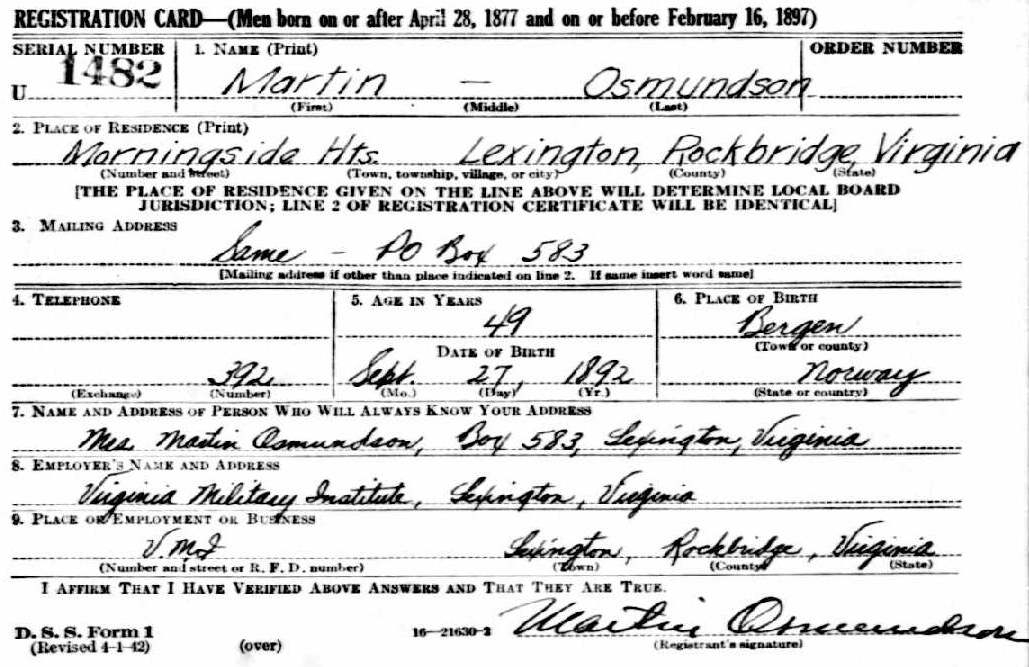 REGISTRATION CARD—(Men born on or after April 28, 1877 and on or before February 16, 1897)
SERIAL NUMBER 1. NAME (Print) ORDER NUMBER
U 1482 Martin — Osmundson
(First) (Middle) (Last)
2. PLACE OF RESIDENCE (Print)
Morningside Hts. Lexington, Rockbridge, Virginia
(Number and street) (Town, township, village, or city) (County) (State)
[THE PLACE OF RESIDENCE GIVEN ON THE LINE ABOVE WILL DETERMINE LOCAL BOARD
JURISDICTION; LINE 2 OF REGISTRATION CERTIFICATE WILL BE IDENTICAL]
3. MAILING ADDRESS
Same - PO Box 583
[Mailing address if other than place indicated on line 2. If same insert word same]
4. TELEPHONE 5. AGE IN YEARS 6. PLACE OF BIRTH
49 Bergen
DATE OF BIRTH (Town or county)
392 Sept. 27, 1892 Norway
(Exchange) (Number) (Mo.) (Day) (Yr.) (State or country)
7. NAME AND ADDRESS OF PERSON WHO WILL ALWAYS KNOW YOUR ADDRESS
Mrs. Martin Osmundson, Box 583, Lexington, Virginia
8. EMPLOYER'S NAME AND ADDRESS
Virginia Military Institute, Lexington, Virginia
9. PLACE OF EMPLOYMENT OR BUSINESS
V.M.I Lexington, Rockbridge, Virginia
(Number and street or R. F. D. number) (Town) (County) (State)
I AFFIRM THAT I HAVE VERIFIED ABOVE ANSWERS AND THAT THEY ARE TRUE.
D. S. S. Form 1 16—21630-2 Martin Osmundson
(Revised 4-1-42) (over) (Registrant's signature)